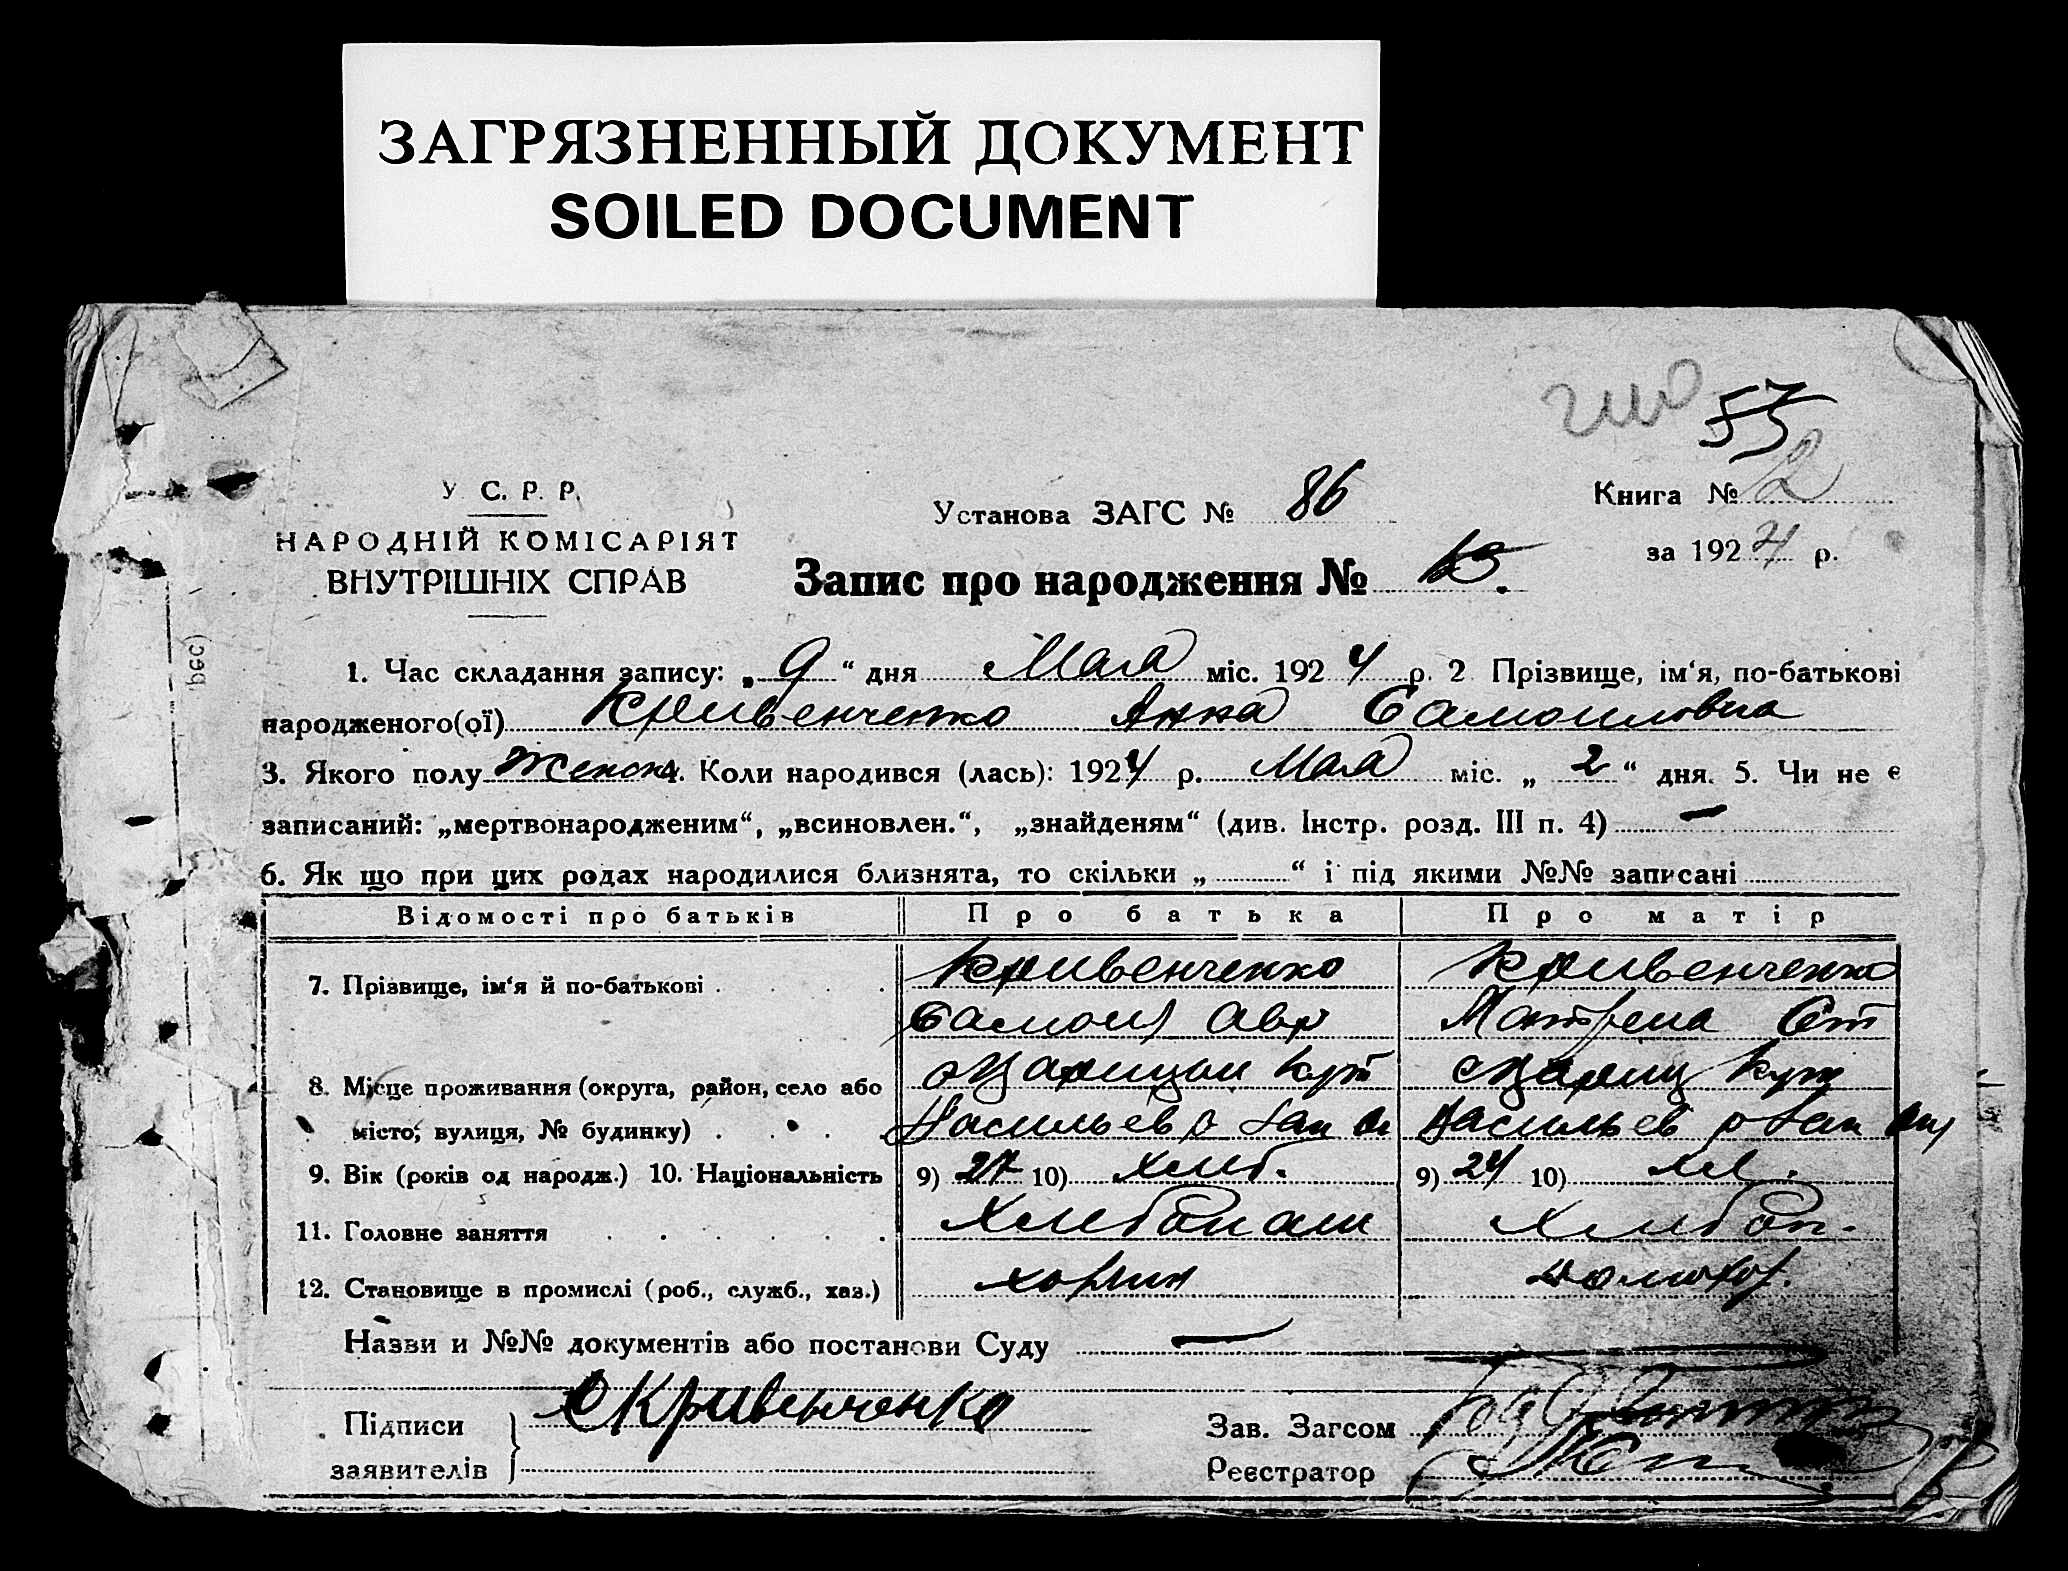 ЗАГРЯЗНЕННЫЙ ДОКУМЕНТ
SOILED DOCUMENT
У. С. Р. Р.
НАРОДНІЙ КОМІСАРІЯТ
ВНУТРІШНІХ СПРАВ
Установа ЗАГС № 86
Книга № 2
за 1924 р.
Запис про народження №
1. Час складання запису: „9“ дня Мая міс. 1924 р. 2 Прізвище, ім‘я, по-батькові
народженого(ої) Кривенченко Анна Самоиловна
3. Якого полу Женск 4. Коли народився (лась): 1924 р. Мая міс. „2“ дня. 5. Чи не є
записаний: „мертвонародженим“, „всиновлен.“, „знайденям“ (див. Інстр. розд. III п. 4) —
6. Як що при цих родах народилися близнята, то скільки „ “ і під якими №№ записані
Відомості про батьків Про батька Про матір
7. Прізвище, ім‘я й по-батькові Кривенченко Кривенченко
Самоил Авр Матрена
8. Місце проживання (округа, район, село або Царицын Кут с Цариц Кут
місто, вулиця, № будинку) Васильев р Зап Васильев р Зап Окр
9. Вік (років од народж.) 10. Національність 9) 27 10) 9) 24 10)
11. Головне заняття Хлебопаш Хлебоп.
12. Становище в промислі (роб., служб., хаз.) хозяин домохоз.
Назви и №№ документів або постанови Суду —
Підписи С Кривенченко Зав. Загсом
заявителів Реєстратор